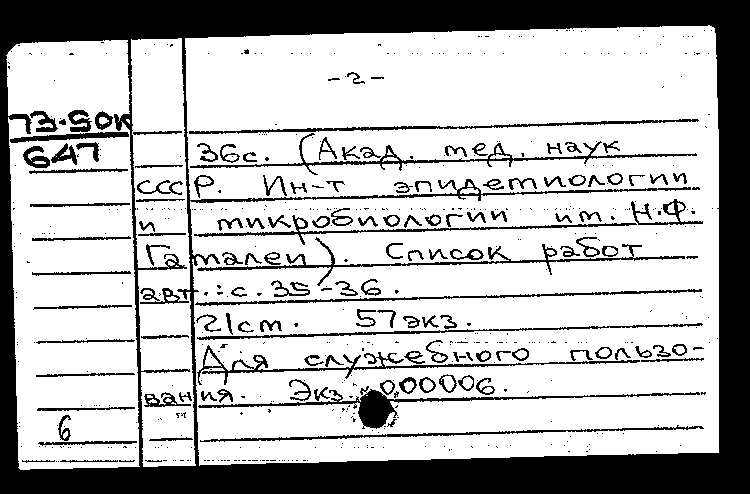 -2-
73-50к
647
36с. (Акад. мед. наук
СССР. Ин-т эпидемиологии
и микробиологии им. Н.Ф.
Гамалеи). Список работ
авт.: с. 35-36.
21см. 57экз.
Для служебного пользо-
вания. Экз. 000006.
6